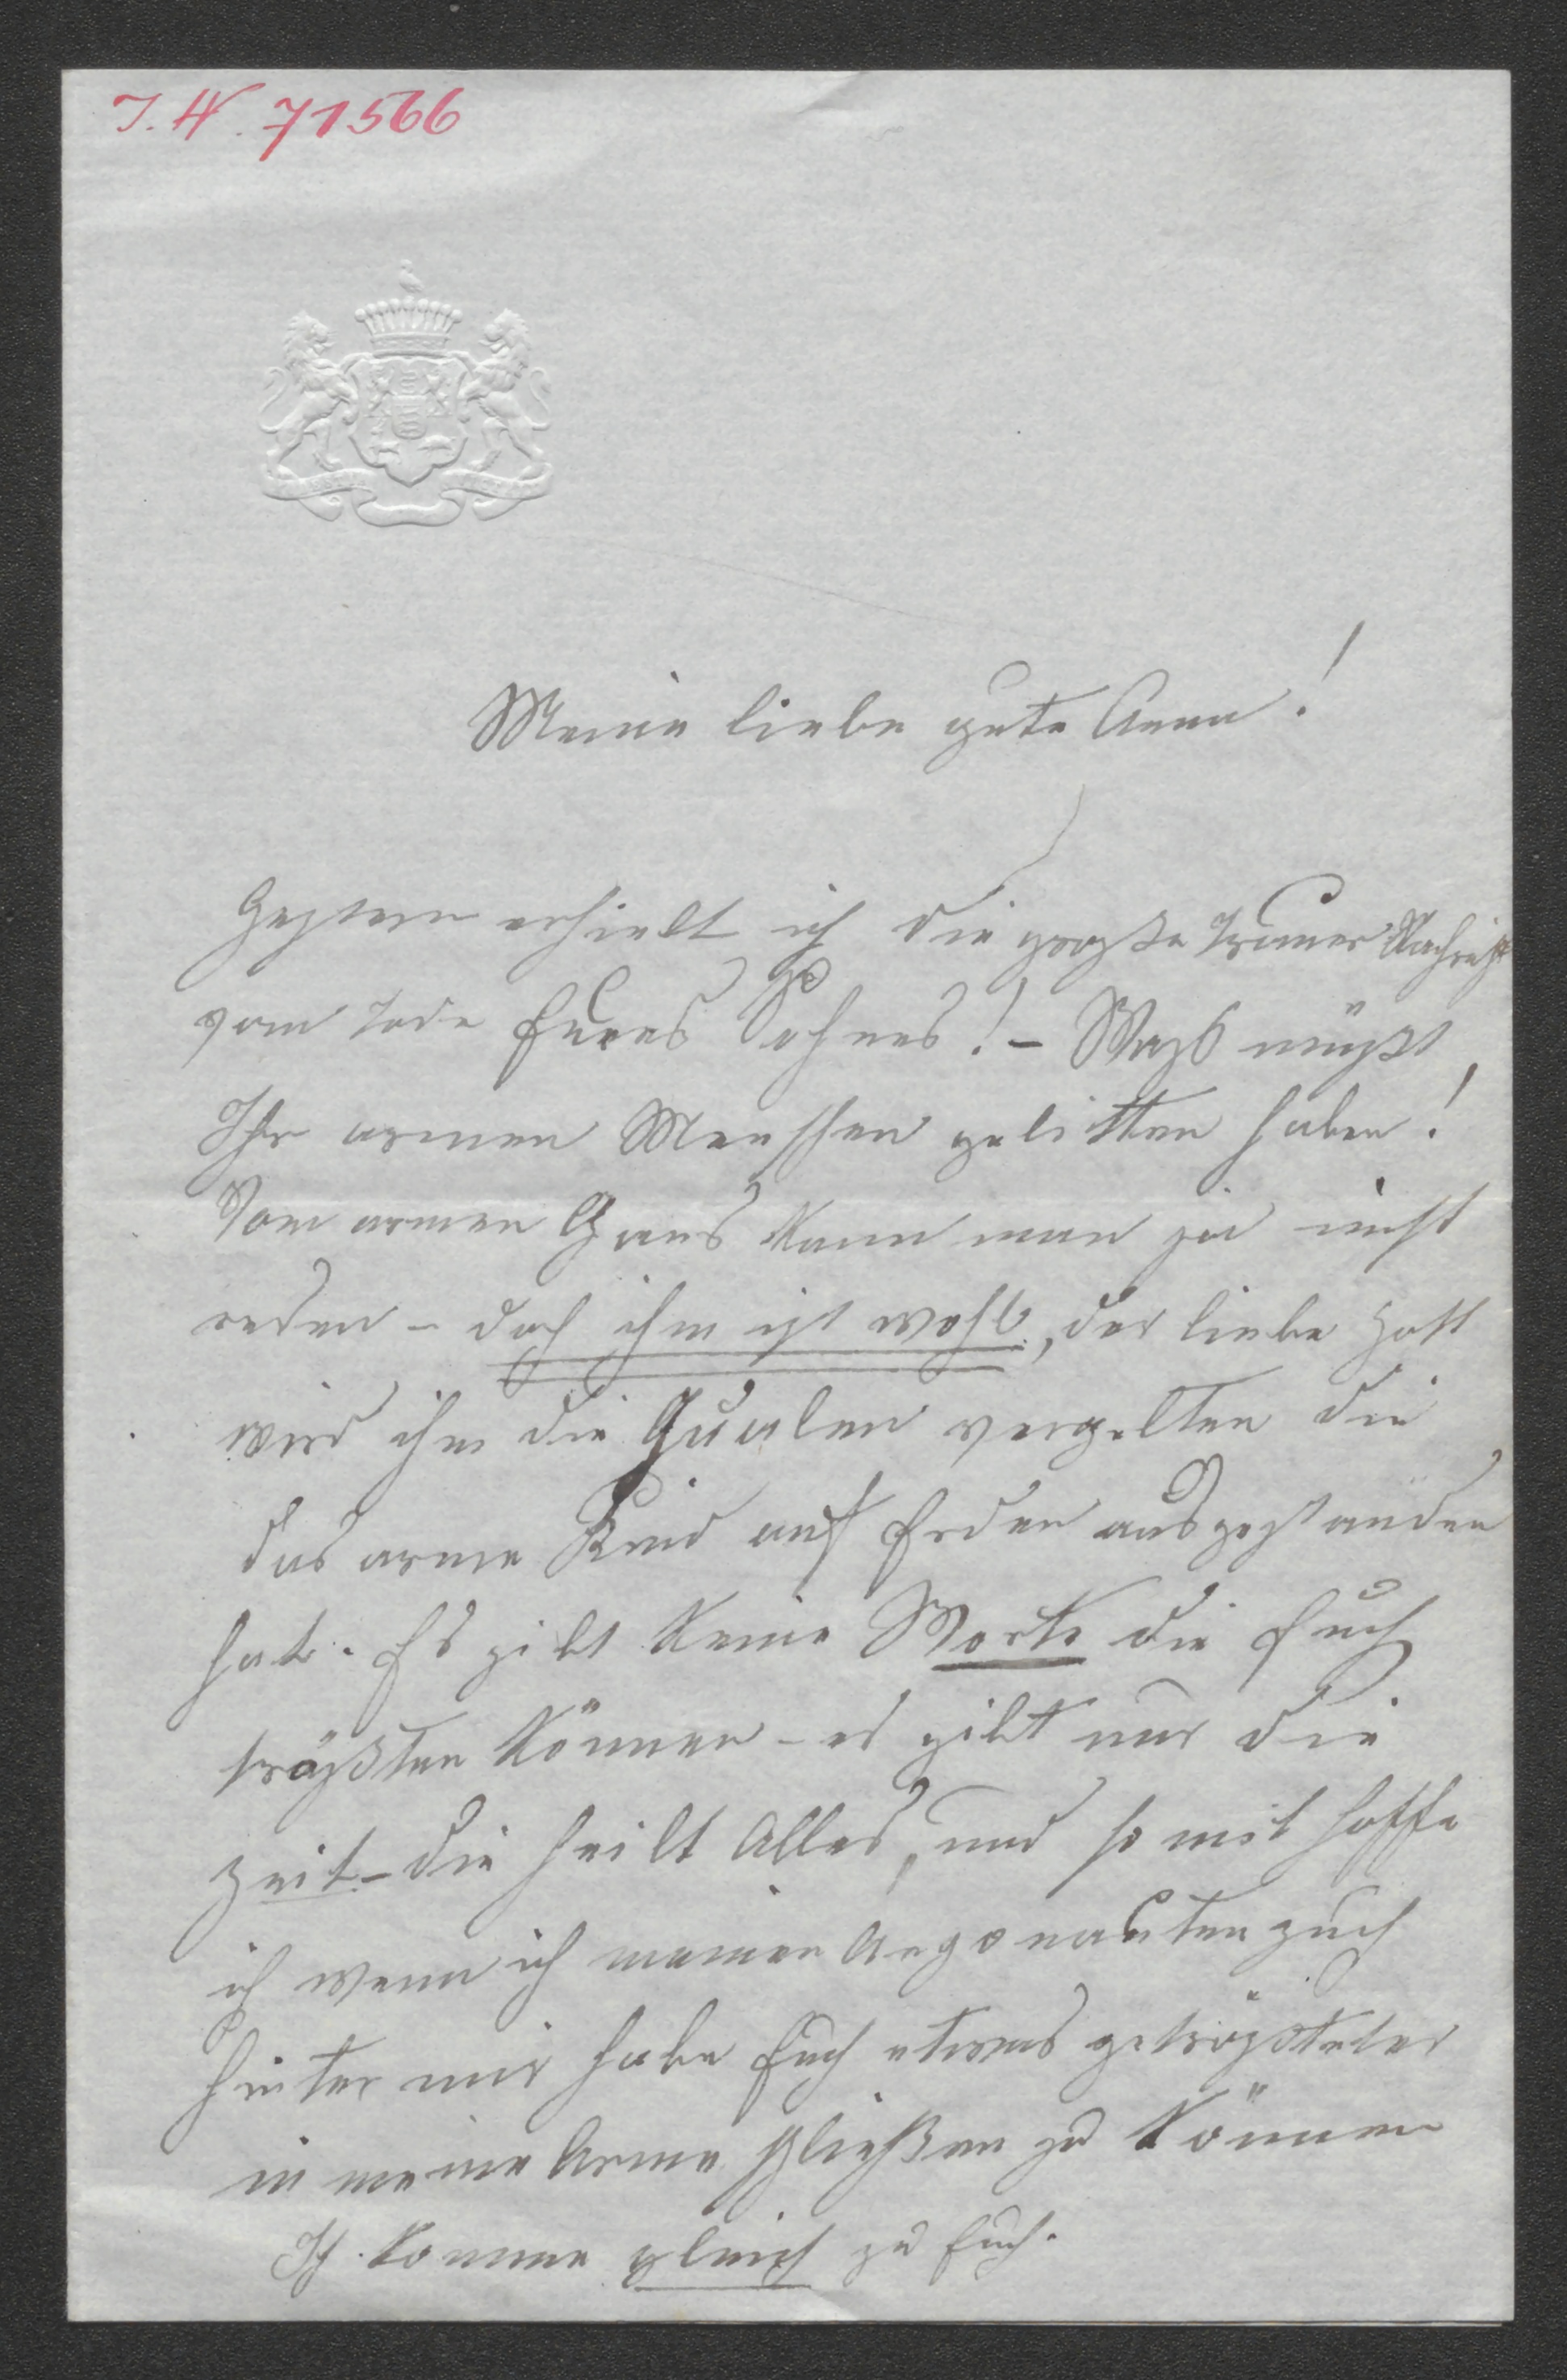 I. N. 71566
Meine liebe gute Anna!
Gestern erhielt ich die große Trauer Nachricht
vom Tode Eures Sohnes! – Waß müßt
Ihr armen Menschen gelitten haben!
Vom armen Hans kann man ja nicht
reden – doch ihm ist wohl, der liebe Gott
wird ihm die Qualen vergelten die
das arme Kind auf Erden ausgestanden
hat. Es gibt keine Worte die Euch
trößten können – es gibt nur die
Zeit – die heilt Alles, und so mit hoffe
ich wenn ich meinen Argonautenzuch
hinter mir habe Euch etwas getrößteter
in meine Arme schließen zu können
Ich komme gleich zu Euch.